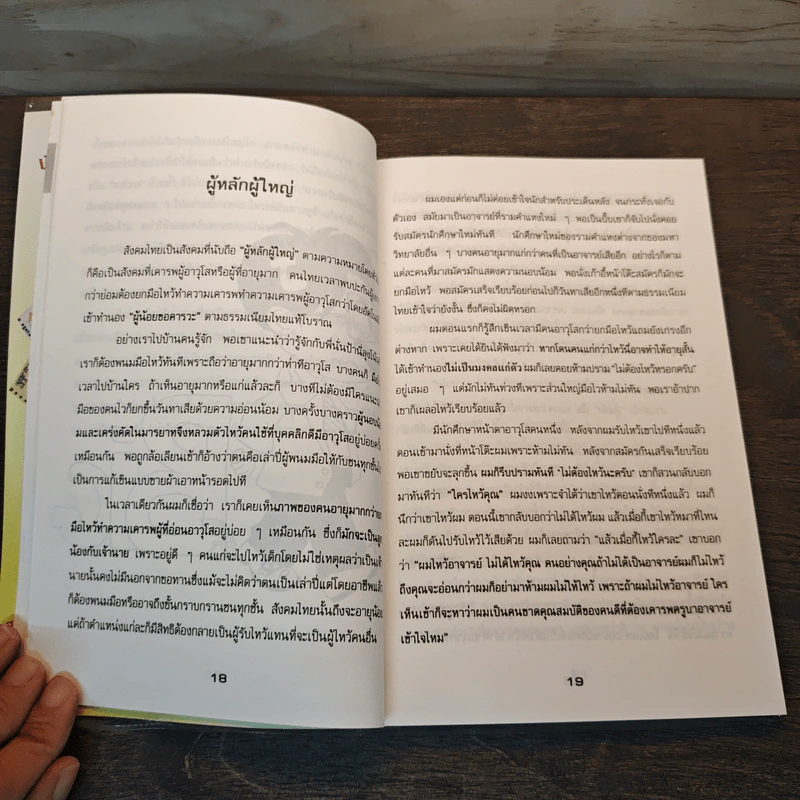 ผู้หลักผู้ใหญ่
สังคมไทยเป็นสังคมที่นับถือ "ผู้หลักผู้ใหญ่" ตามความหมายโดย
ก็คือเป็นสังคมที่เคารพผู้อาวุโสหรือผู้ที่อายุมาก คนไทยเวลาพบปะกัน
กว่าย่อมต้องยกมือไหว้ทำความเคารพทำความเคารพผู้อาวุโสกว่าโดย
เข้าทำนอง "ผู้น้อยขอคารวะ" ตามธรรมเนียมไทยแท้โบราณ
อย่างเราไปบ้านคนรู้จัก พอเขาแนะนำว่ารู้จักกับพี่นั่นป้านี่ลุง
เราก็ต้องพนมมือไหว้ทันทีเพราะถือว่าอายุมากกว่าท่าทีอาวุโส บางคนก็
เวลาไปบ้านใคร ถ้าเห็นอายุมากหรือแก่แล้วละก็ บางทีไม่ต้องมีใคร
มือของคนไวก็ยกขึ้นวันทาเสียด้วยความอ่อนน้อม บางครั้งบางคราวผู้
มและเคร่งคัดในมารยาทจึงหลวมตัวไหว้คนใช้ที่บุคคลิกดีมีอาวุโสอยู่บ่อย
เหมือนกัน พอถูกล้อเลียนเข้าก็อ้างว่าตนคือเล่าปี่ผู้พนมมือให้กับชนทุกชั้น
เป็นการแก้เขินแบบขายผ้าเอาหน้ารอดไปที
ในเวลาเดียวกันผมก็เชื่อว่า เราก็เคยเห็นภาพของคนอายุมากกว่า
มือไหว้ทำความเคารพผู้ที่อ่อนอาวุโสอยู่บ่อย ๆ เหมือนกัน ซึ่งก็มักจะเป็น
น้องกับเจ้านาย เพราะอยู่ดี ๆ คนแก่จะไปไหว้เด็กโดยไม่ใช่เหตุผลว่าเป็น
นายนั้นคงไม่มีนอกจากขอทานซึ่งแม้จะไม่คิดว่าตนเป็นเล่าปี่แต่โดยอาชีพแล้ว
ก็ต้องพนมมือหรืออาจถึงขั้นกราบกรานชนทุกชั้น สังคมไทยนั้นถึงจะอายุน้อย
แต่ถ้าตำแหน่งแก่ละก็มีสิทธิต้องกลายเป็นผู้รับไหว้แทนที่จะเป็นผู้ไหว้คนอื่น
18
ผมเองแต่ก่อนก็ไม่ค่อยเข้าใจนักสำหรับประเด็นหลัง จนกระทั่งเจอกับ
ตัวเอง สมัยมาเป็นอาจารย์ที่รามคำแหงใหม่ ๆ พอเป็นปั๊บเขาก็จับไปนั่งคอย
รับสมัครนักศึกษาใหม่ทันที นักศึกษาใหม่ของรามคำแหงต่างจากของมหา
วิทยาลัยอื่น ๆ บางคนอายุมากกว่าคนที่เป็นอาจารย์เสียอีก อย่างไรก็ตาม
แต่ละคนที่มาสมัครมักแสดงความนอบน้อม พอนั่งเก้าอี้หน้าโต๊ะสมัครก็มักจะ
ยกมือไหว้ พอสมัครเสร็จเรียบร้อยก่อนไปก็วันทาเสียอีกหนึ่งทีตามธรรมเนียม
ไทยเข้าใจว่ายังงั้น ซึ่งก็คงไม่ผิดหรอก
ผมตอนแรกก็รู้สึกเขินเวลามีคนอาวุโสกว่ายกมือไหว้แถมยังเกรงอีก
ต่างหาก เพราะเคยได้ยินได้ฟังมาว่า หากโดนคนแก่กว่าไหว้นี่อาจทำให้อายุสั้น
ได้เข้าทำนองไม่เป็นมงคลแก่ตัว ผมก็เลยคอยห้ามปราม "ไม่ต้องไหว้หรอกครับ"
อยู่เสมอ ๆ แต่มักไม่ทันท่วงทีเพราะส่วนใหญ่มือไวห้ามไม่ทัน พอเราอ้าปาก
เขาก็เผลอไหว้เรียบร้อยแล้ว
มีนักศึกษาหน้าตาอาวุโสคนหนึ่ง หลังจากผมรับไหว้เขาไปทีหนึ่งแล้ว
ตอนเข้ามานั่งที่หน้าโต๊ะผมเพราะห้ามไม่ทัน หลังจากสมัครกันเสร็จเรียบร้อย
พอเขาขยับจะลุกขึ้น ผมก็รีบปรามทันที "ไม่ต้องไหว้นะครับ" เขาก็สวนกลับบอก
มาทันทีว่า "ใครไหว้คุณ" ผมงงเพราะจำได้ว่าเขาไหว้ตอนนั่งทีหนึ่งแล้ว ผมก็
นึกว่าเขาไหว้ผม ตอนนี้เขากลับบอกว่าไม่ได้ไหว้ผม แล้วเมื่อกี้เขาไหว้หมาที่ไหน
ละผมก็ดันไปรับไหว้ไว้เสียด้วย ผมก็เลยถามว่า "แล้วเมื่อกี้ไหว้ใครละ" เขาบอก
ว่า "ผมไหว้อาจารย์ ไม่ได้ไหว้คุณ คนอย่างคุณถ้าไม่ได้เป็นอาจารย์ผมก็ไม่ไหว้
ถึงคุณจะอ่อนกว่าผมก็อย่ามาห้ามผมไม่ให้ไหว้ เพราะถ้าผมไม่ไหว้อาจารย์ ใคร
เห็นเข้าก็จะหาว่าผมเป็นคนขาดคุณสมบัติของคนดีที่ต้องเคารพครูบาอาจารย์
เข้าใจไหม"
19